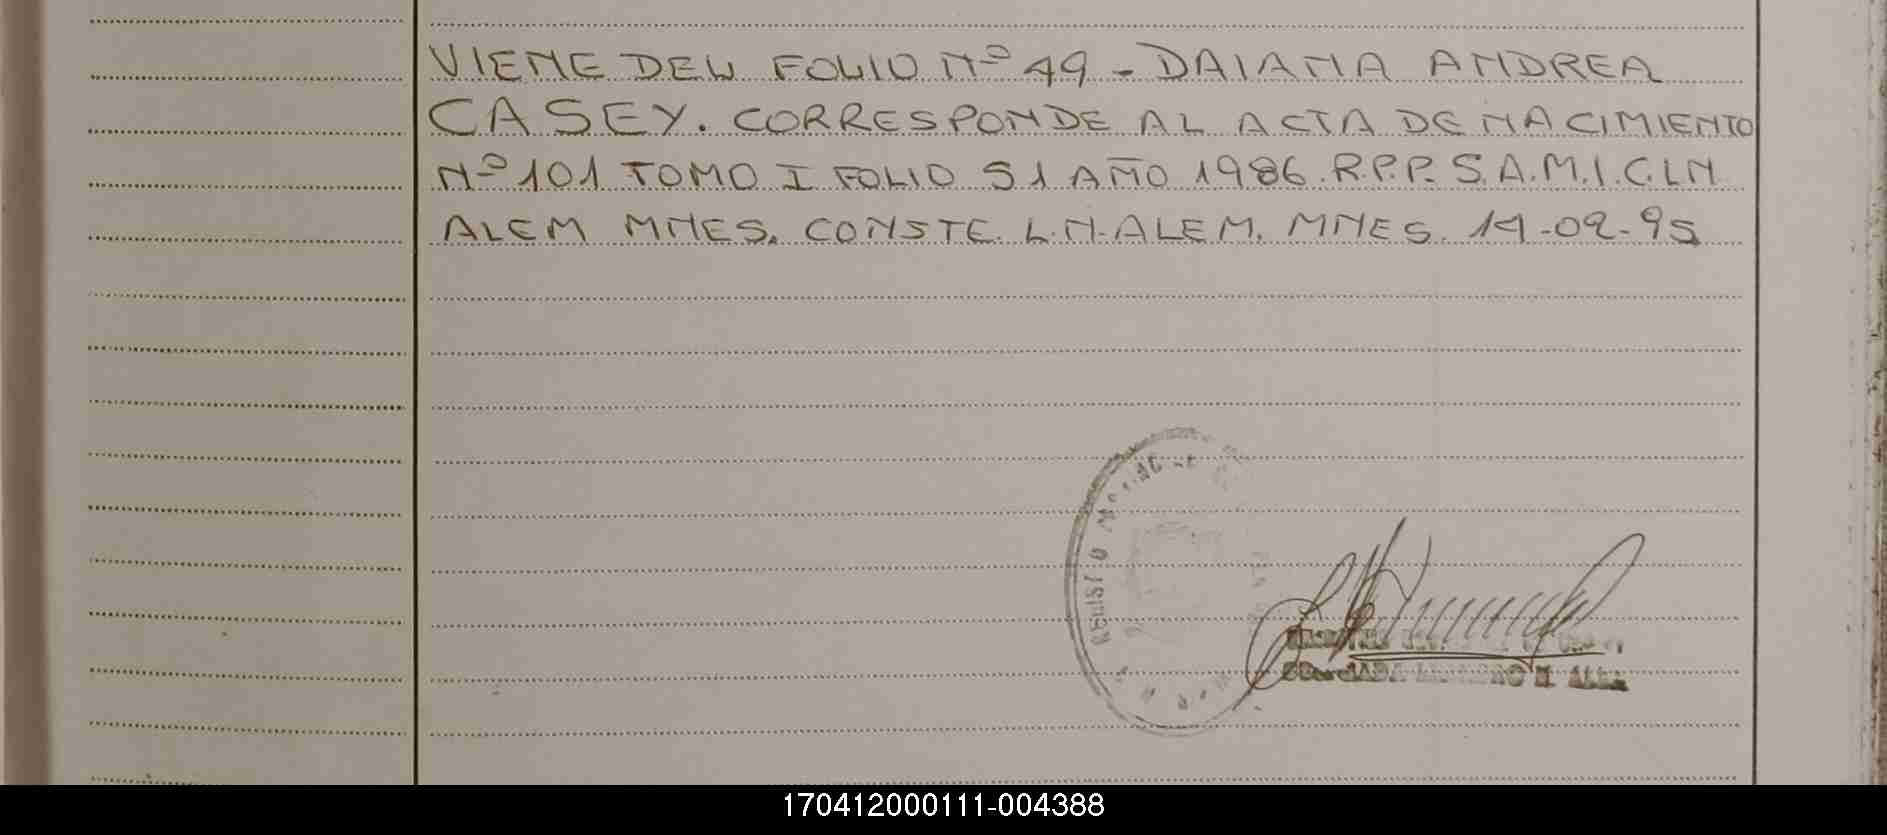 VIENE DEL FOLIO Nº 49 - DAIANA ANDREA
CASEY. CORRESPONDE AL ACTA DE NACIMIENTO
Nº 101 TOMO I FOLIO 51 AÑO 1986. R.P.P. S.A.M.I.C. LN
ALEM MNES. CONSTE. L.N. ALEM. MNES. 19-02-95
170412000111-004388